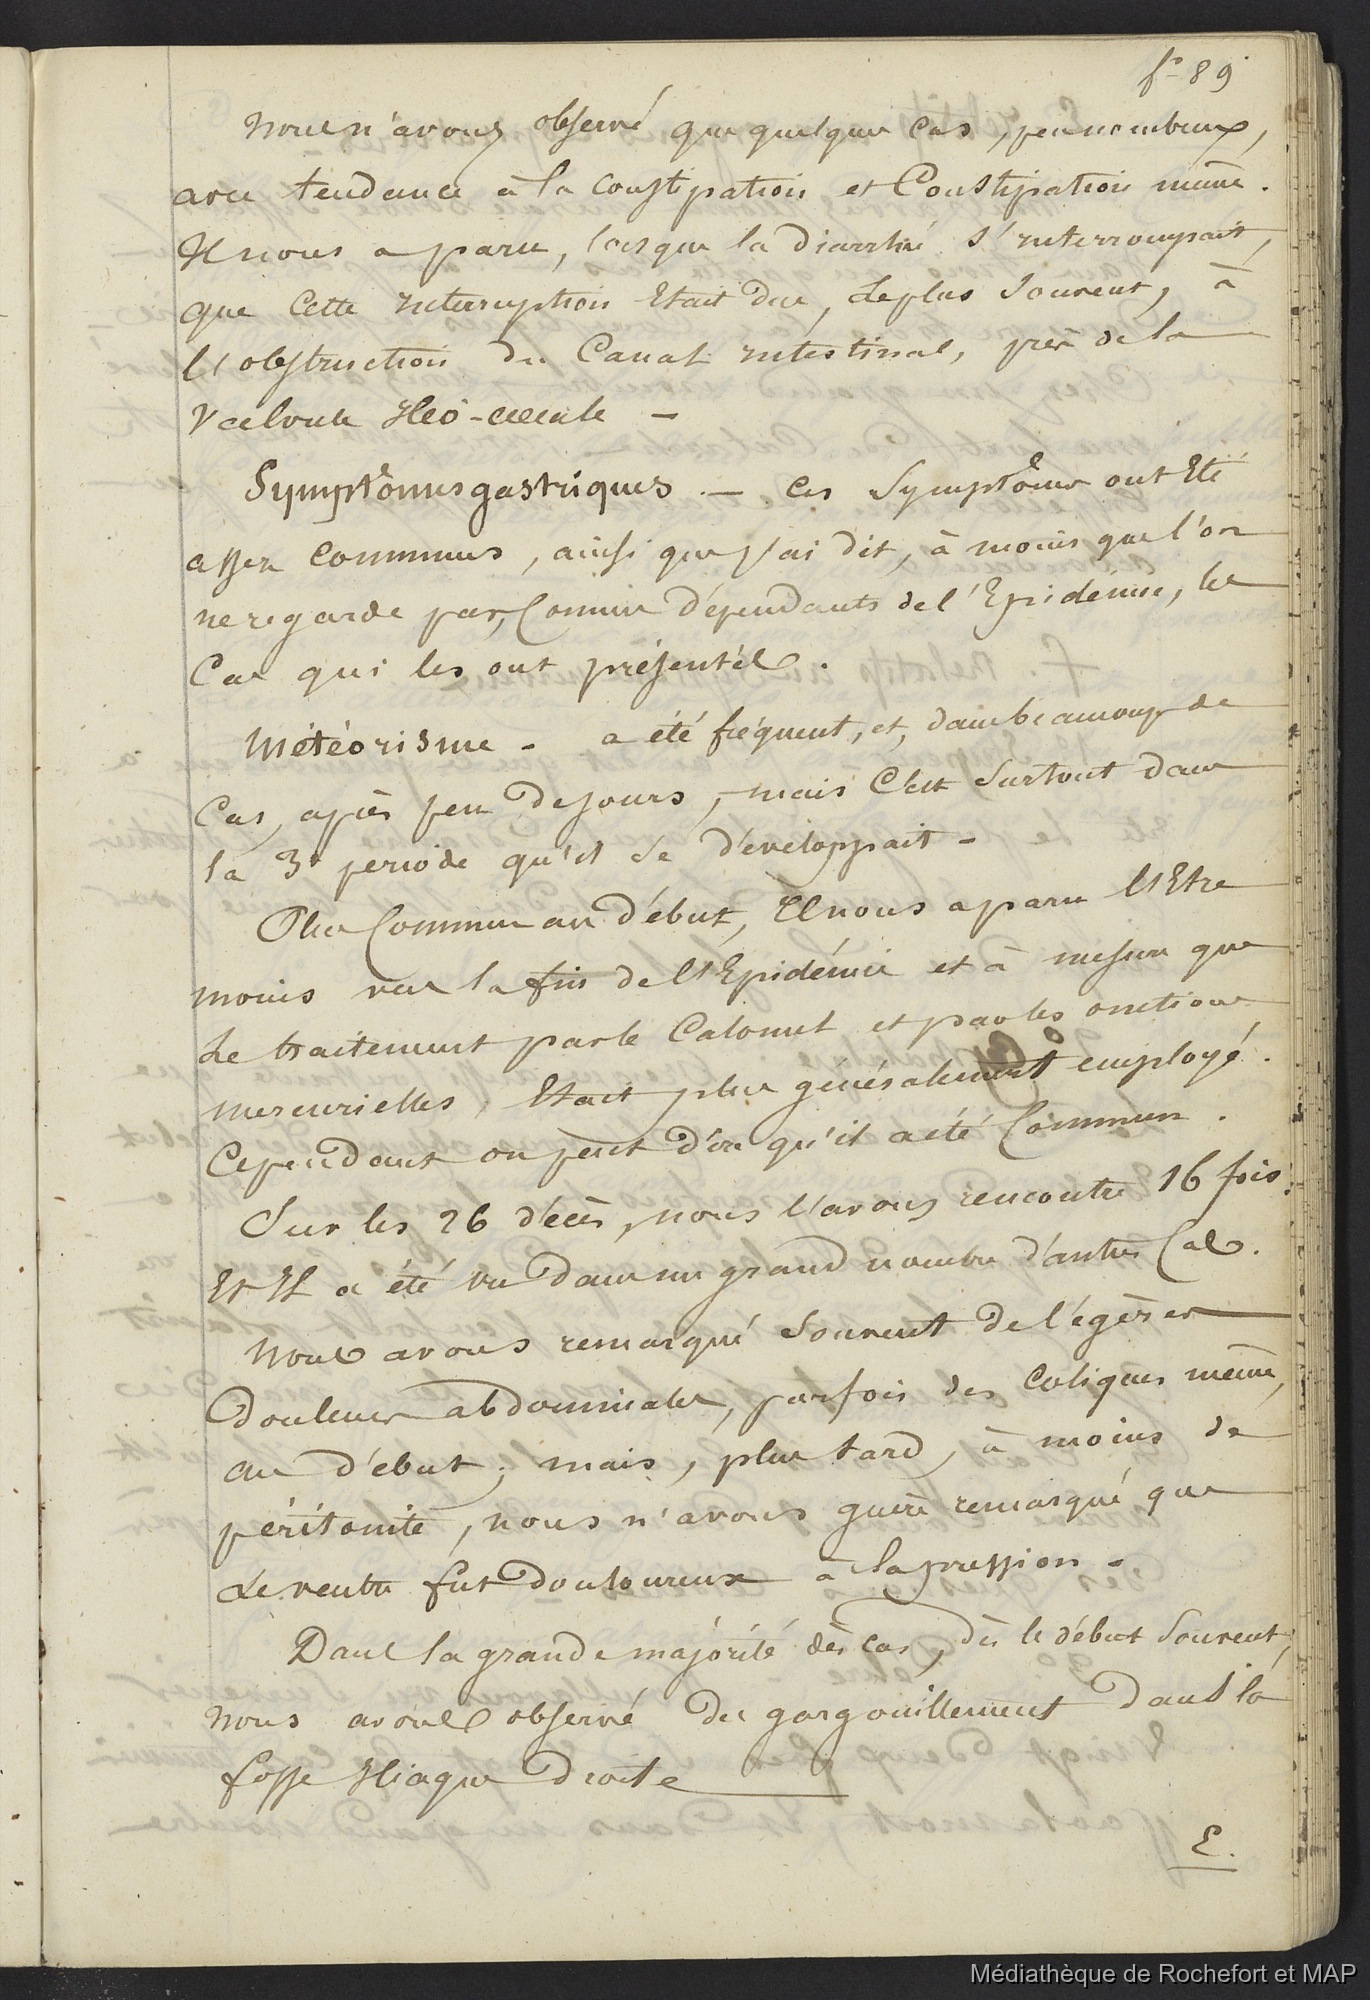 fo 89
nous n'avons observé que quelques cas, peu nombreux,
avec tendance à la constipation et Constipation même.
Il nous a paru, lorsque la diarrhé s'interrompait,
que cette interruption Etait due, le plus souvent, à
l'obstruction du Canal intestinal, près de la
Valvule Iléo-cœcale —
Symptômes gastriques — ces symptômes ont Eté
assez communs, ainsi que j'ai dit, à moins que l'on
ne regarde pas, Comme dépendants de l'Epidémie, les
Cas qui les ont présentés.
Météorisme - a été fréquent, et, dans beaucoup de
Cas, après peu de jours, mais C'est surtout dans
la 3e période qu'il se développait -
Plus Commun au début, Il nous a paru l'Etre
moins vers la fin de l'Epidémie et à mesure que
le traitement par le Calomel et par les onctions
mercurielles, Etait plus généralement employé.
Cependant on peut dire qu'il a été Commun.
Sur les 26 décès, nous l'avons rencontré 16 fois.
Et Il a été vu dans un grand nombre d'autres Cas.
Nous avons remarqué souvent de légères
douleurs abdominales, parfois des coliques même,
au début; mais, plus tard, à moins de
péritonite, nous n'avons guère remarqué que
le ventre fut douloureux à la pression -
Dans la grande majorité des cas, dès le début souvent,
nous avons observé du gargouillement dans la
fosse Iliaque droite
E.
Médiathèque de Rochefort et MAP